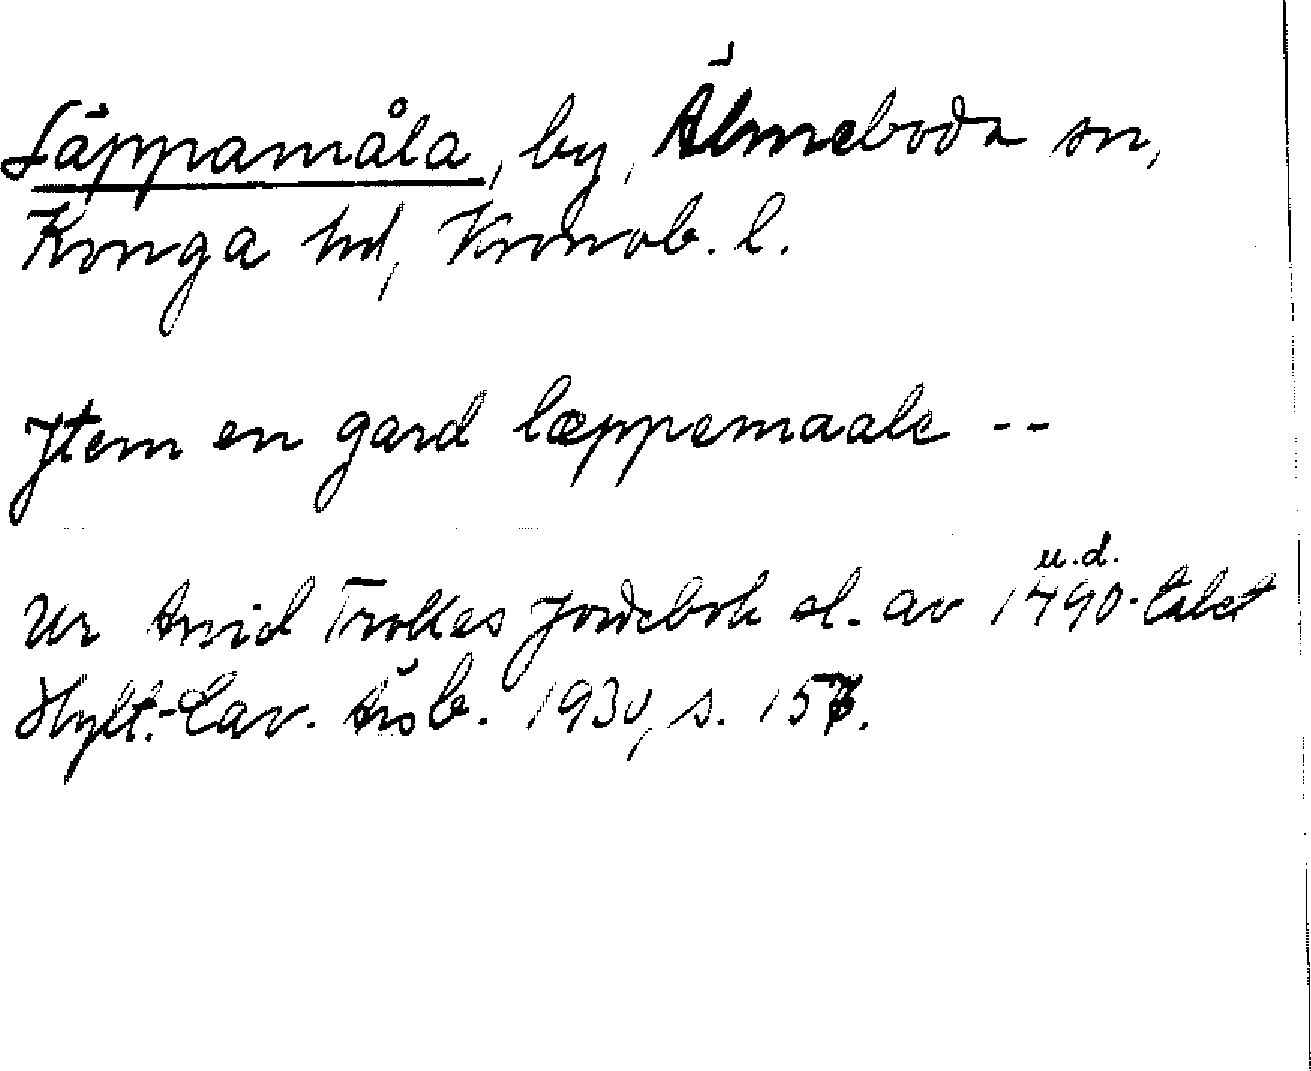 Läppamåla, by, Älmeboda sn,
Konga hd, Kronob. l.
Jtem en gard læppemaale --
u.d.
Ur Arvid Trolles Jordebok sl. av 1490-talet
Hylt.-Cav. Årsb. 1930, s.